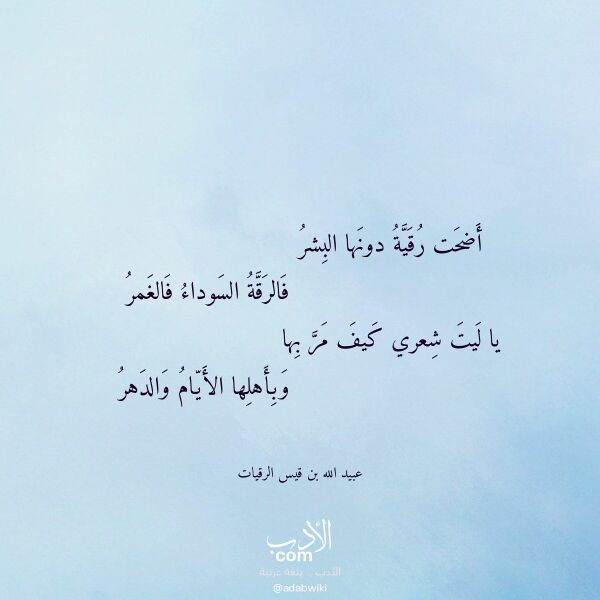 أَضحَت رُقَيَّةُ دونَها البِشرُ
فَالرَقَّةُ السَوداءُ فَالغَمرُ
يا لَيتَ شِعري كَيفَ مَرَّ بِها
وَبِأَهلِها الأَيّامُ وَالدَهرُ
عبيد الله بن قيس الرقيات
الأدب
com
الأدب .. بلغة عربية
@adabwiki